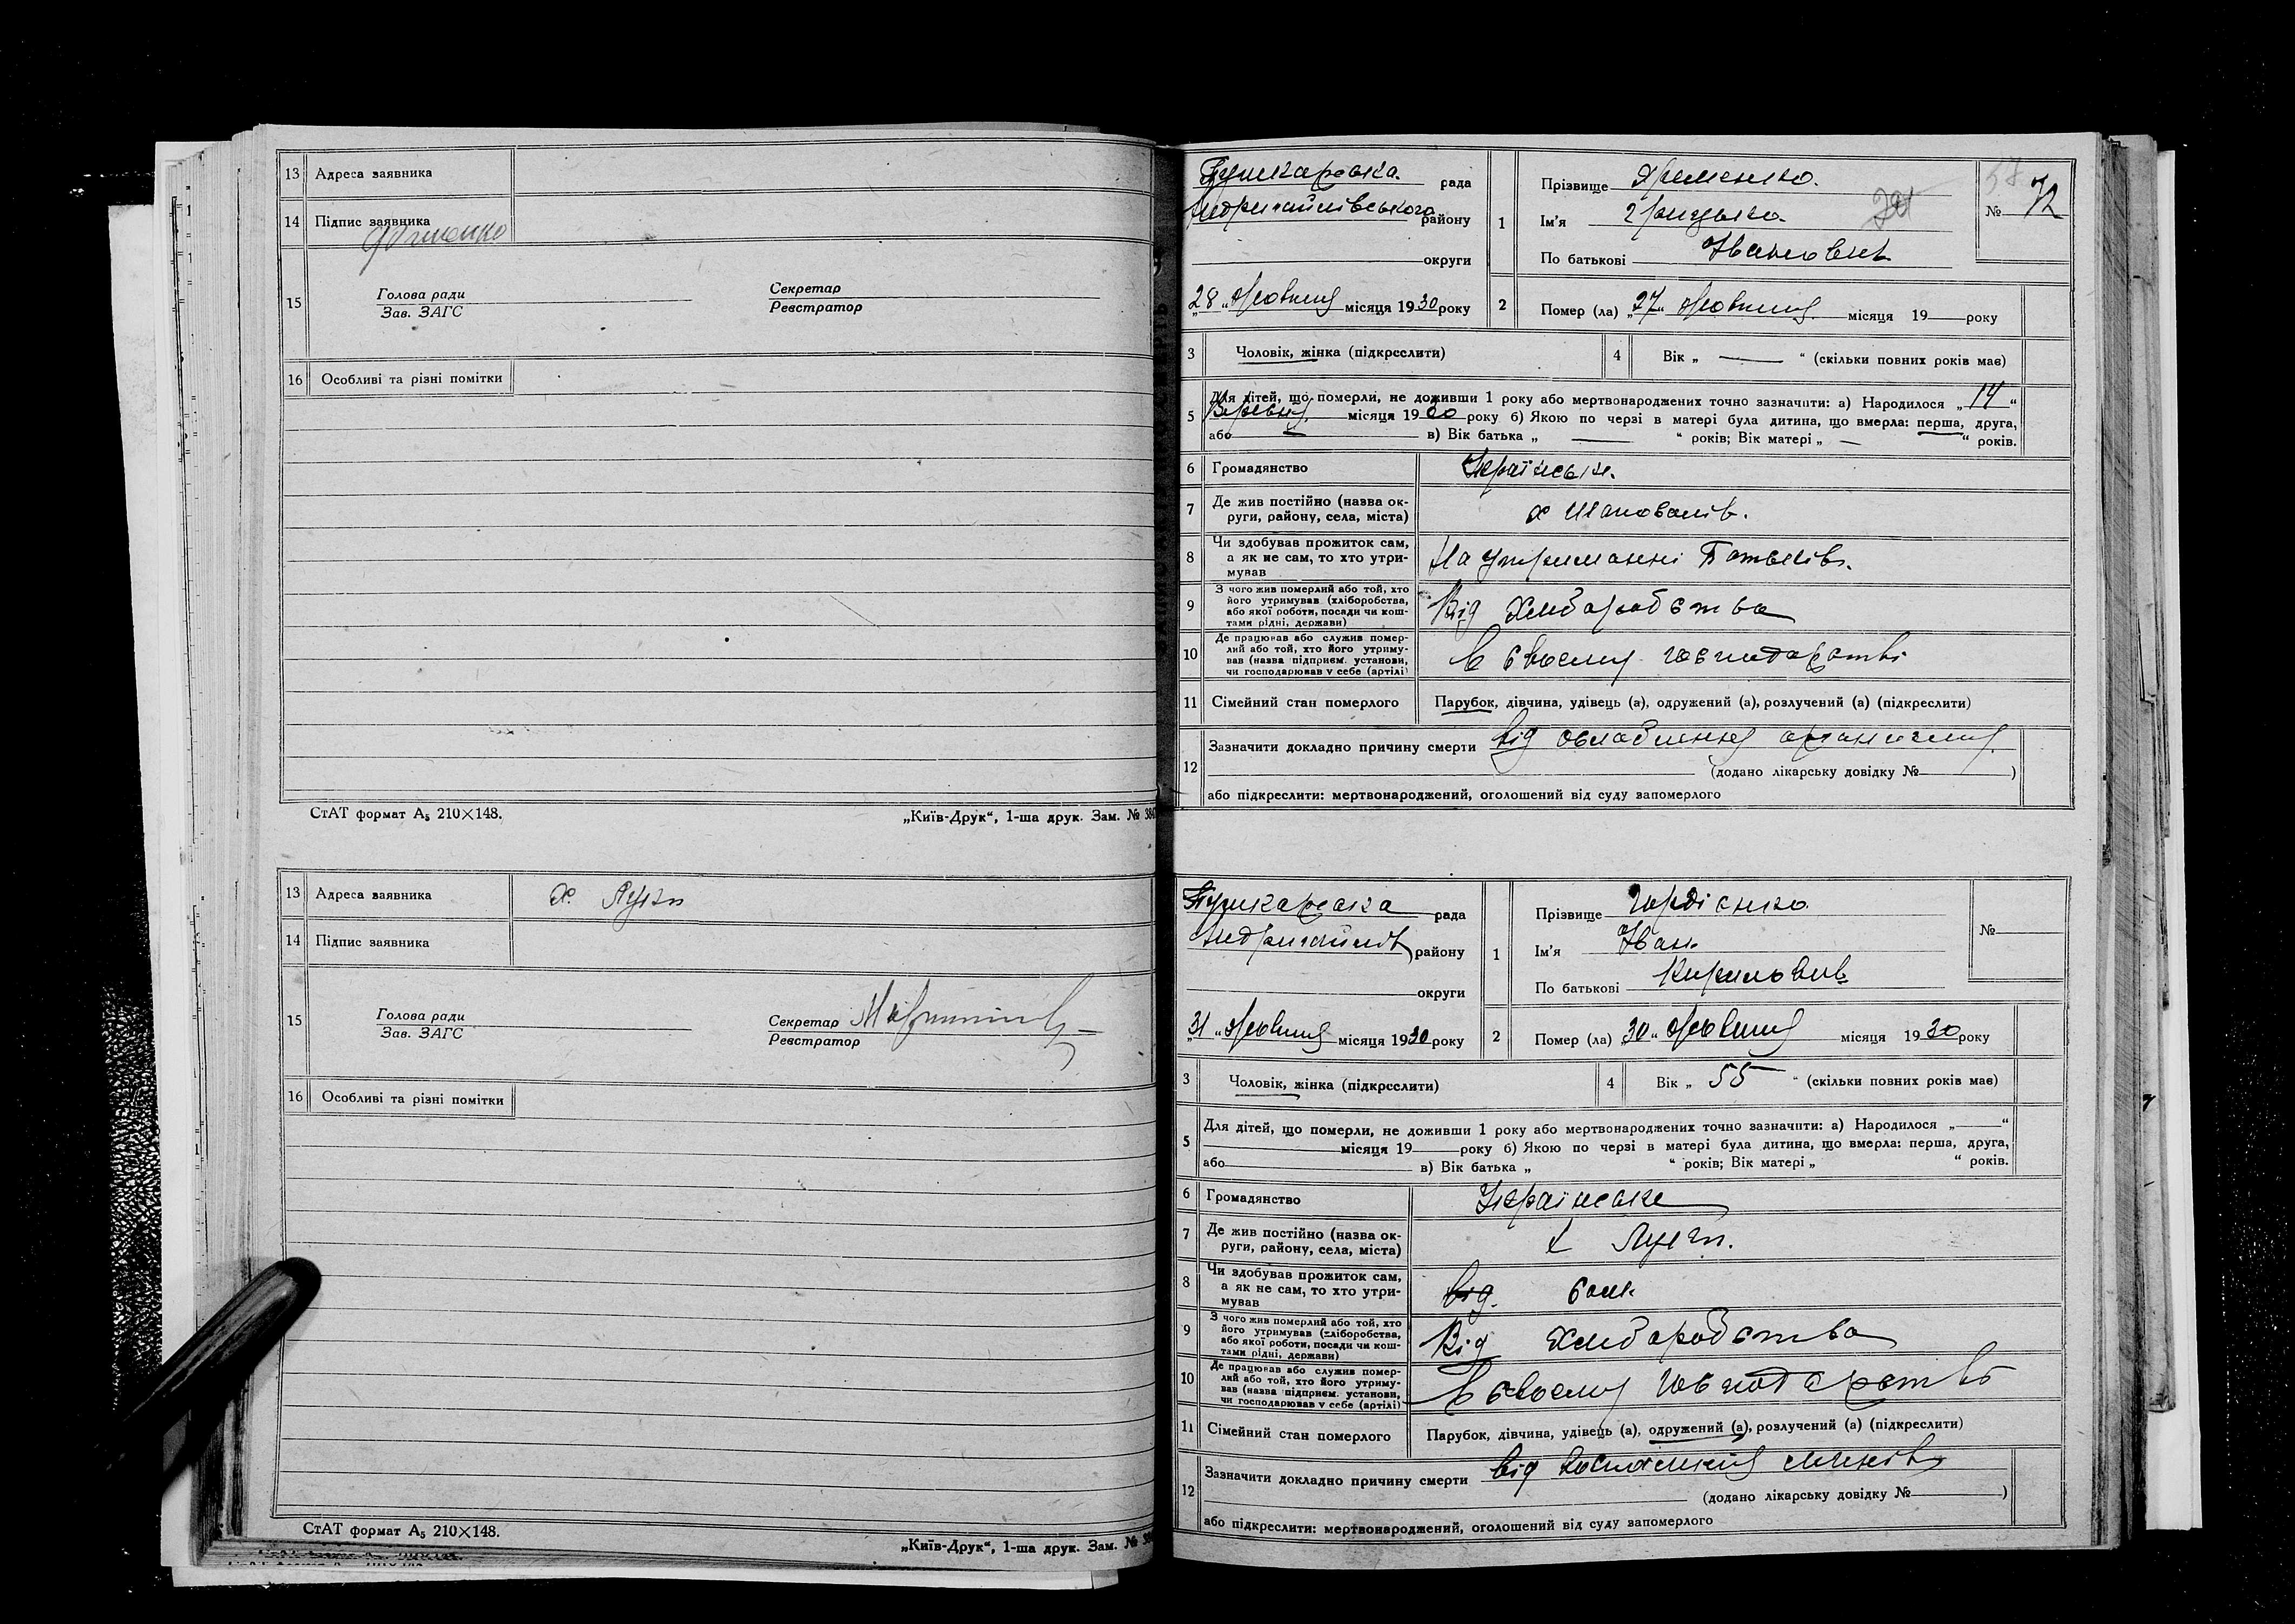 13 Адреса заявника
14 Підпис заявника
15 Голова ради
Зав. ЗАГС
Секретар
Реєстратор
16 Особливі та різні помітки
СтАТ формат А5 210×148.
„Київ-Друк“, 1-ша друк. Зам. №
13 Адреса заявника х.
14 Підпис заявника
15 Голова ради
Зав. ЗАГС
Секретар
Реєстратор
16 Особливі та різні помітки
СтАТ формат А5 210×148.
„Київ-Друк“, 1-ша друк. Зам. №
Пушкарська рада
району
округи
„28“ Жовтня місяця 1930 року
1 Прізвище Яременко
Ім'я Грицько
По батькові Іванович
№ 72
2 Помер (ла) „27“ Жовтня місяця 19 року
3 Чоловік, жінка (підкреслити)
4 Вік „ — “ (скільки повних років має)
5 Для дітей, що померли, не доживши 1 року або мертвонароджених точно зазначити: а) Народилося „14“
місяця 1930 року б) Якою по черзі в матері була дитина, що вмерла: перша, друга,
або — в) Вік батька „ — “ років; Вік матері „ — “ років.
6 Громадянство
7 Де жив постійно (назва округи, району, села, міста) х Шаповалів.
8 Чи здобував прожиток сам,
а як не сам, то хто утримував
На утриманні Батьків.
9 З чого жив померлий або той, хто
його утримував (хліборобства,
або якої роботи, посади чи коштами рідні, держави)
Від хліборобства
10 Де працював або служив померлий або той, хто його утримував (назва підприєм. установи,
чи господарював у себе (артілі)
в своєму господарстві
11 Сімейний стан померлого
Парубок, дівчина, удівець (а), одружений (а), розлучений (а) (підкреслити)
12 Зазначити докладно причину смерти від ослаблення организму
(додано лікарську довідку № )
або підкреслити: мертвонароджений, оголошений від суду запомерлого
Пушкарська рада
району
округи
„31“ Жовтня місяця 1930 року
1 Прізвище Гордієнко
Ім'я Іван
По батькові Кирилович
№
2 Помер (ла) „30“ Жовтня місяця 1930 року
3 Чоловік, жінка (підкреслити)
4 Вік „55“ (скільки повних років має)
5 Для дітей, що померли, не доживши 1 року або мертвонароджених точно зазначити: а) Народилося „ “
місяця 19 року б) Якою по черзі в матері була дитина, що вмерла: перша, друга,
або в) Вік батька „ “ років; Вік матері „ “ років.
6 Громадянство Українське
7 Де жив постійно (назва округи, району, села, міста)
8 Чи здобував прожиток сам,
а як не сам, то хто утримував
від. сам
9 З чого жив померлий або той, хто
його утримував (хліборобства,
або якої роботи, посади чи коштами рідні, держави)
Від хліборобства
10 Де працював або служив померлий або той, хто його утримував (назва підприєм. установи,
чи господарював у себе (артілі)
в своєму господарстві
11 Сімейний стан померлого
Парубок, дівчина, удівець (а), одружений (а), розлучений (а) (підкреслити)
12 Зазначити докладно причину смерти від
(додано лікарську довідку № )
або підкреслити: мертвонароджений, оголошений від суду запомерлого